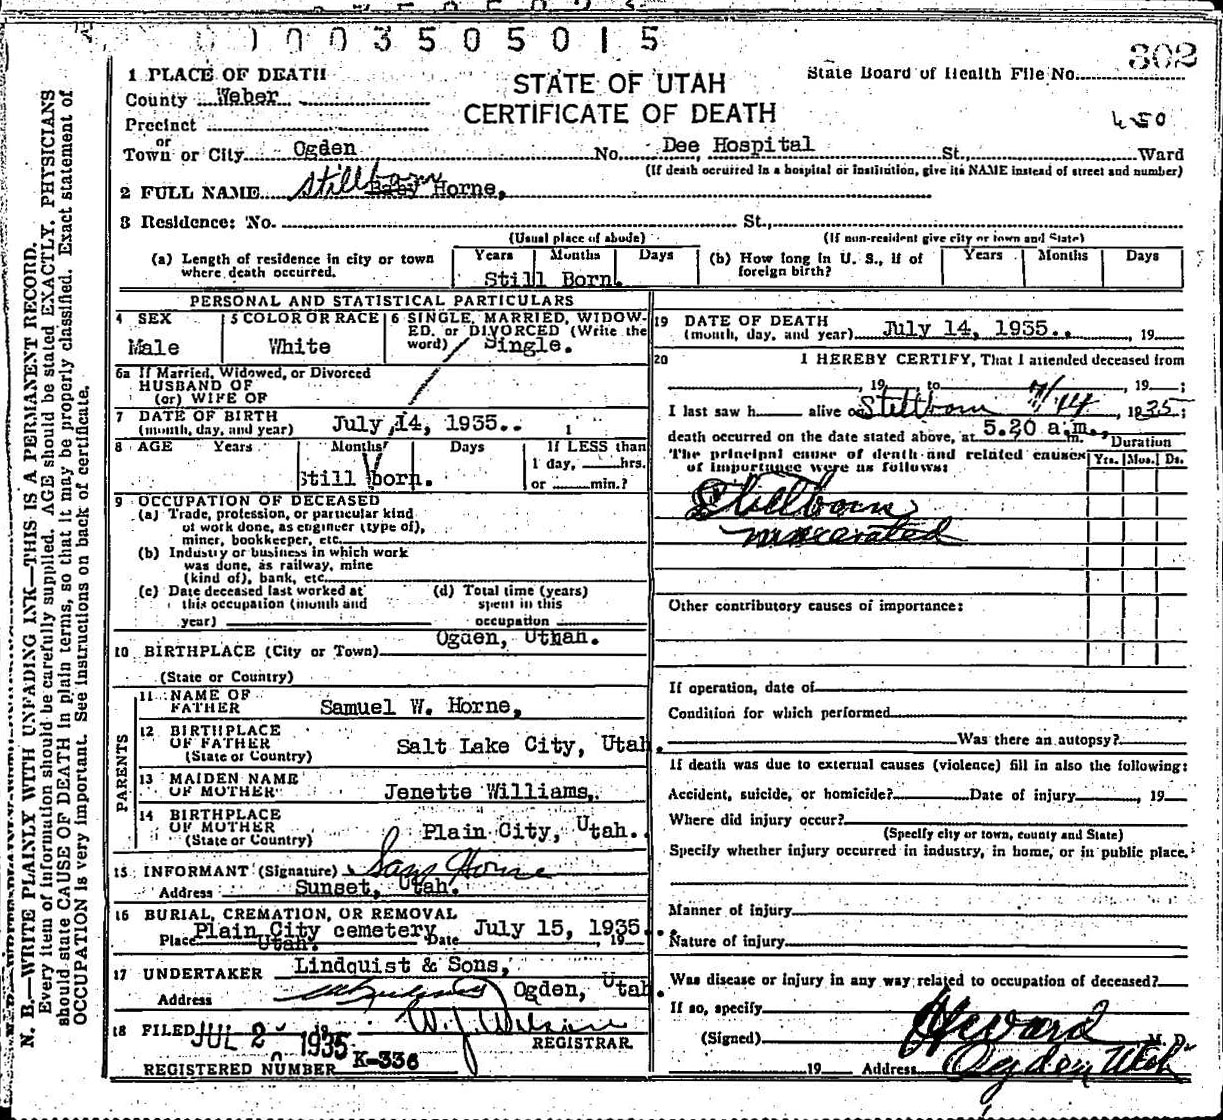 01003505015
302
1 PLACE OF DEATH
STATE OF UTAH
State Board of Health File No.
County Weber
CERTIFICATE OF DEATH
Precinct
or
Town or City Ogden No. Dee Hospital St., Ward
(If death occurred in a hospital or institution, give its NAME instead of street and number)
2 FULL NAME Stillborn Baby Horne,
3 Residence: No. St.,
(Usual place of abode) (If non-resident give city or town and State)
(a) Length of residence in city or town where death occurred. Years Months Days
Still Born.
(b) How long in U. S., if of foreign birth? Years Months Days
PERSONAL AND STATISTICAL PARTICULARS
4 SEX
Male
5 COLOR OR RACE
White
6 SINGLE, MARRIED, WIDOW-
ED, or DIVORCED (Write the
word) Single.
6a If Married, Widowed, or Divorced
HUSBAND OF
(or) WIFE OF
7 DATE OF BIRTH
(month, day, and year) July 14, 1935..
8 AGE Years Months Days If LESS than
1 day, hrs.
or min.?
Still born.
9 OCCUPATION OF DECEASED
(a) Trade, profession, or particular kind
of work done, as engineer (type of),
miner, bookkeeper, etc.
(b) Industry or business in which work
was done, as railway, mine
(kind of), bank, etc.
(c) Date deceased last worked at
this occupation (month and
year)
(d) Total time (years)
spent in this
occupation
10 BIRTHPLACE (City or Town) Ogden, Uthan.
(State or Country)
PARENTS
11 NAME OF
FATHER Samuel W. Horne,
12 BIRTHPLACE
OF FATHER
(State or Country) Salt Lake City, Utah.
13 MAIDEN NAME
OF MOTHER Jenette Williams,
14 BIRTHPLACE
OF MOTHER
(State or Country) Plain City, Utah.
15 INFORMANT (Signature) Sam Horne
Address Sunset, Utah.
16 BURIAL, CREMATION, OR REMOVAL
Place Plain City cemetery Date July 15, 1935. 19
Utah.
17 UNDERTAKER Lindquist & Sons,
Address Ogden, Utah.
18 FILED JUL 2 1935 W. J. Wilson
REGISTRAR
REGISTERED NUMBER K-336
19 DATE OF DEATH
(month, day, and year) July 14, 1935.. , 19
20 I HEREBY CERTIFY, That I attended deceased from
, 19 , to , 19 ;
I last saw h alive on Stillborn 7/14, 1935;
death occurred on the date stated above, at 5.20 a.m. m.
Duration
The principal cause of death and related causes
of importance were as follows:
Yrs. Mos. Ds.
Stillborn
macerated
Other contributory causes of importance:
If operation, date of
Condition for which performed
Was there an autopsy?
If death was due to external causes (violence) fill in also the following:
Accident, suicide, or homicide? Date of injury , 19
Where did injury occur?
(Specify city or town, county and State)
Specify whether injury occurred in industry, in home, or in public place.
Manner of injury
Nature of injury
Was disease or injury in any way related to occupation of deceased?
If so, specify
(Signed) M. D.
19 Address Ogden Utah
N. B.—WRITE PLAINLY WITH UNFADING INK—THIS IS A PERMANENT RECORD.
Every item of information should be carefully supplied. AGE should be stated EXACTLY. PHYSICIANS
should state CAUSE OF DEATH in plain terms, so that it may be properly classified. Exact statement of
OCCUPATION is very important. See instructions on back of certificate.